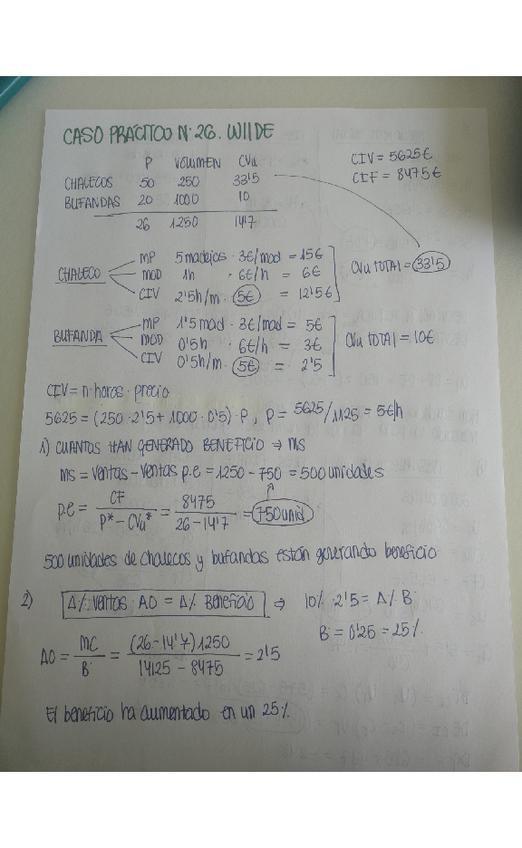 CASO PRÁCTICO Nº 26. WILDE
P VOLUMEN CVu
CHALECOS 50 250 33'5
BUFANDAS 20 1000 10
26 1250 14'7
CIV = 5625€
CIF = 8475€
CHALECO
MP 5 madejas · 3€/mad = 15€
MOD 1h · 6€/h = 6€
CIV 2'5h/m · 5€ = 12'5€
CVu TOTAL = 33'5
BUFANDA
MP 1'5 mad · 3€/mad = 5€
MOD 0'5h · 6€/h = 3€
CIV 0'5h/m · 5€ = 2'5
CVu TOTAL = 10€
CIV = n·horas · precio
5625 = (250 · 2'5 + 1000 · 0'5) · P, P = 5625/1125 = 5€/h
1) CUANTOS HAN GENERADO BENEFICIO ⇒ MS
MS = ventas - ventas p.e = 1250 - 750 = 500 unidades
p.e = CF / P* - CVu* = 8475 / 26 - 14'7 = 750 unid
500 unidades de chalecos y bufandas están generando beneficio
2) Δ% ventas · AO = Δ% Beneficio ⇒ 10% · 2'5 = Δ% B
B = 0'25 = 25%
AO = MC / B = (26 - 14'7) 1250 / 14125 - 8475 = 2'5
El beneficio ha aumentado en un 25%